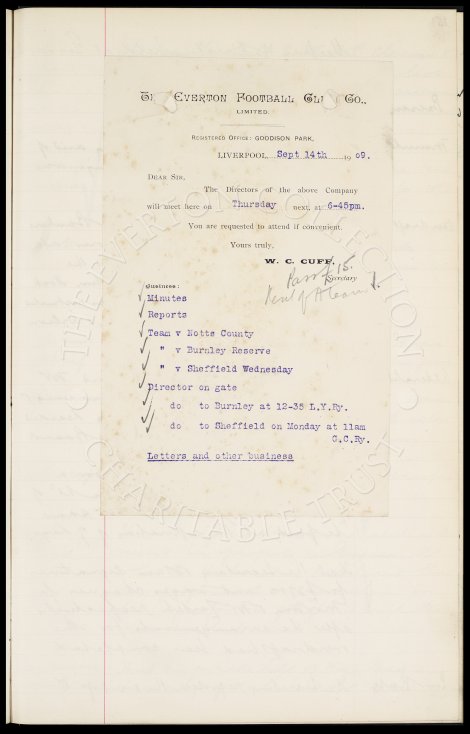 THE EVERTON FOOTBALL CLUB CO.,
LIMITED.
REGISTERED OFFICE: GOODISON PARK,
LIVERPOOL, Sept 14th 1909.
DEAR SIR,
The Directors of the above Company
will meet here on Thursday next, at 6-45pm.
You are requested to attend if convenient.
Yours truly,
W. C. CUFF,
Secretary
Pass £15.
Rent of A team
Business:
Minutes
Reports
Team v Notts County
" v Burnley Reserve
" v Sheffield Wednesday
Director on gate
do to Burnley at 12-35 L.Y.Ry.
do to Sheffield on Monday at 11am
G.C.Ry.
Letters and other business
THE EVERTON COLLECTION
CHARITABLE TRUST